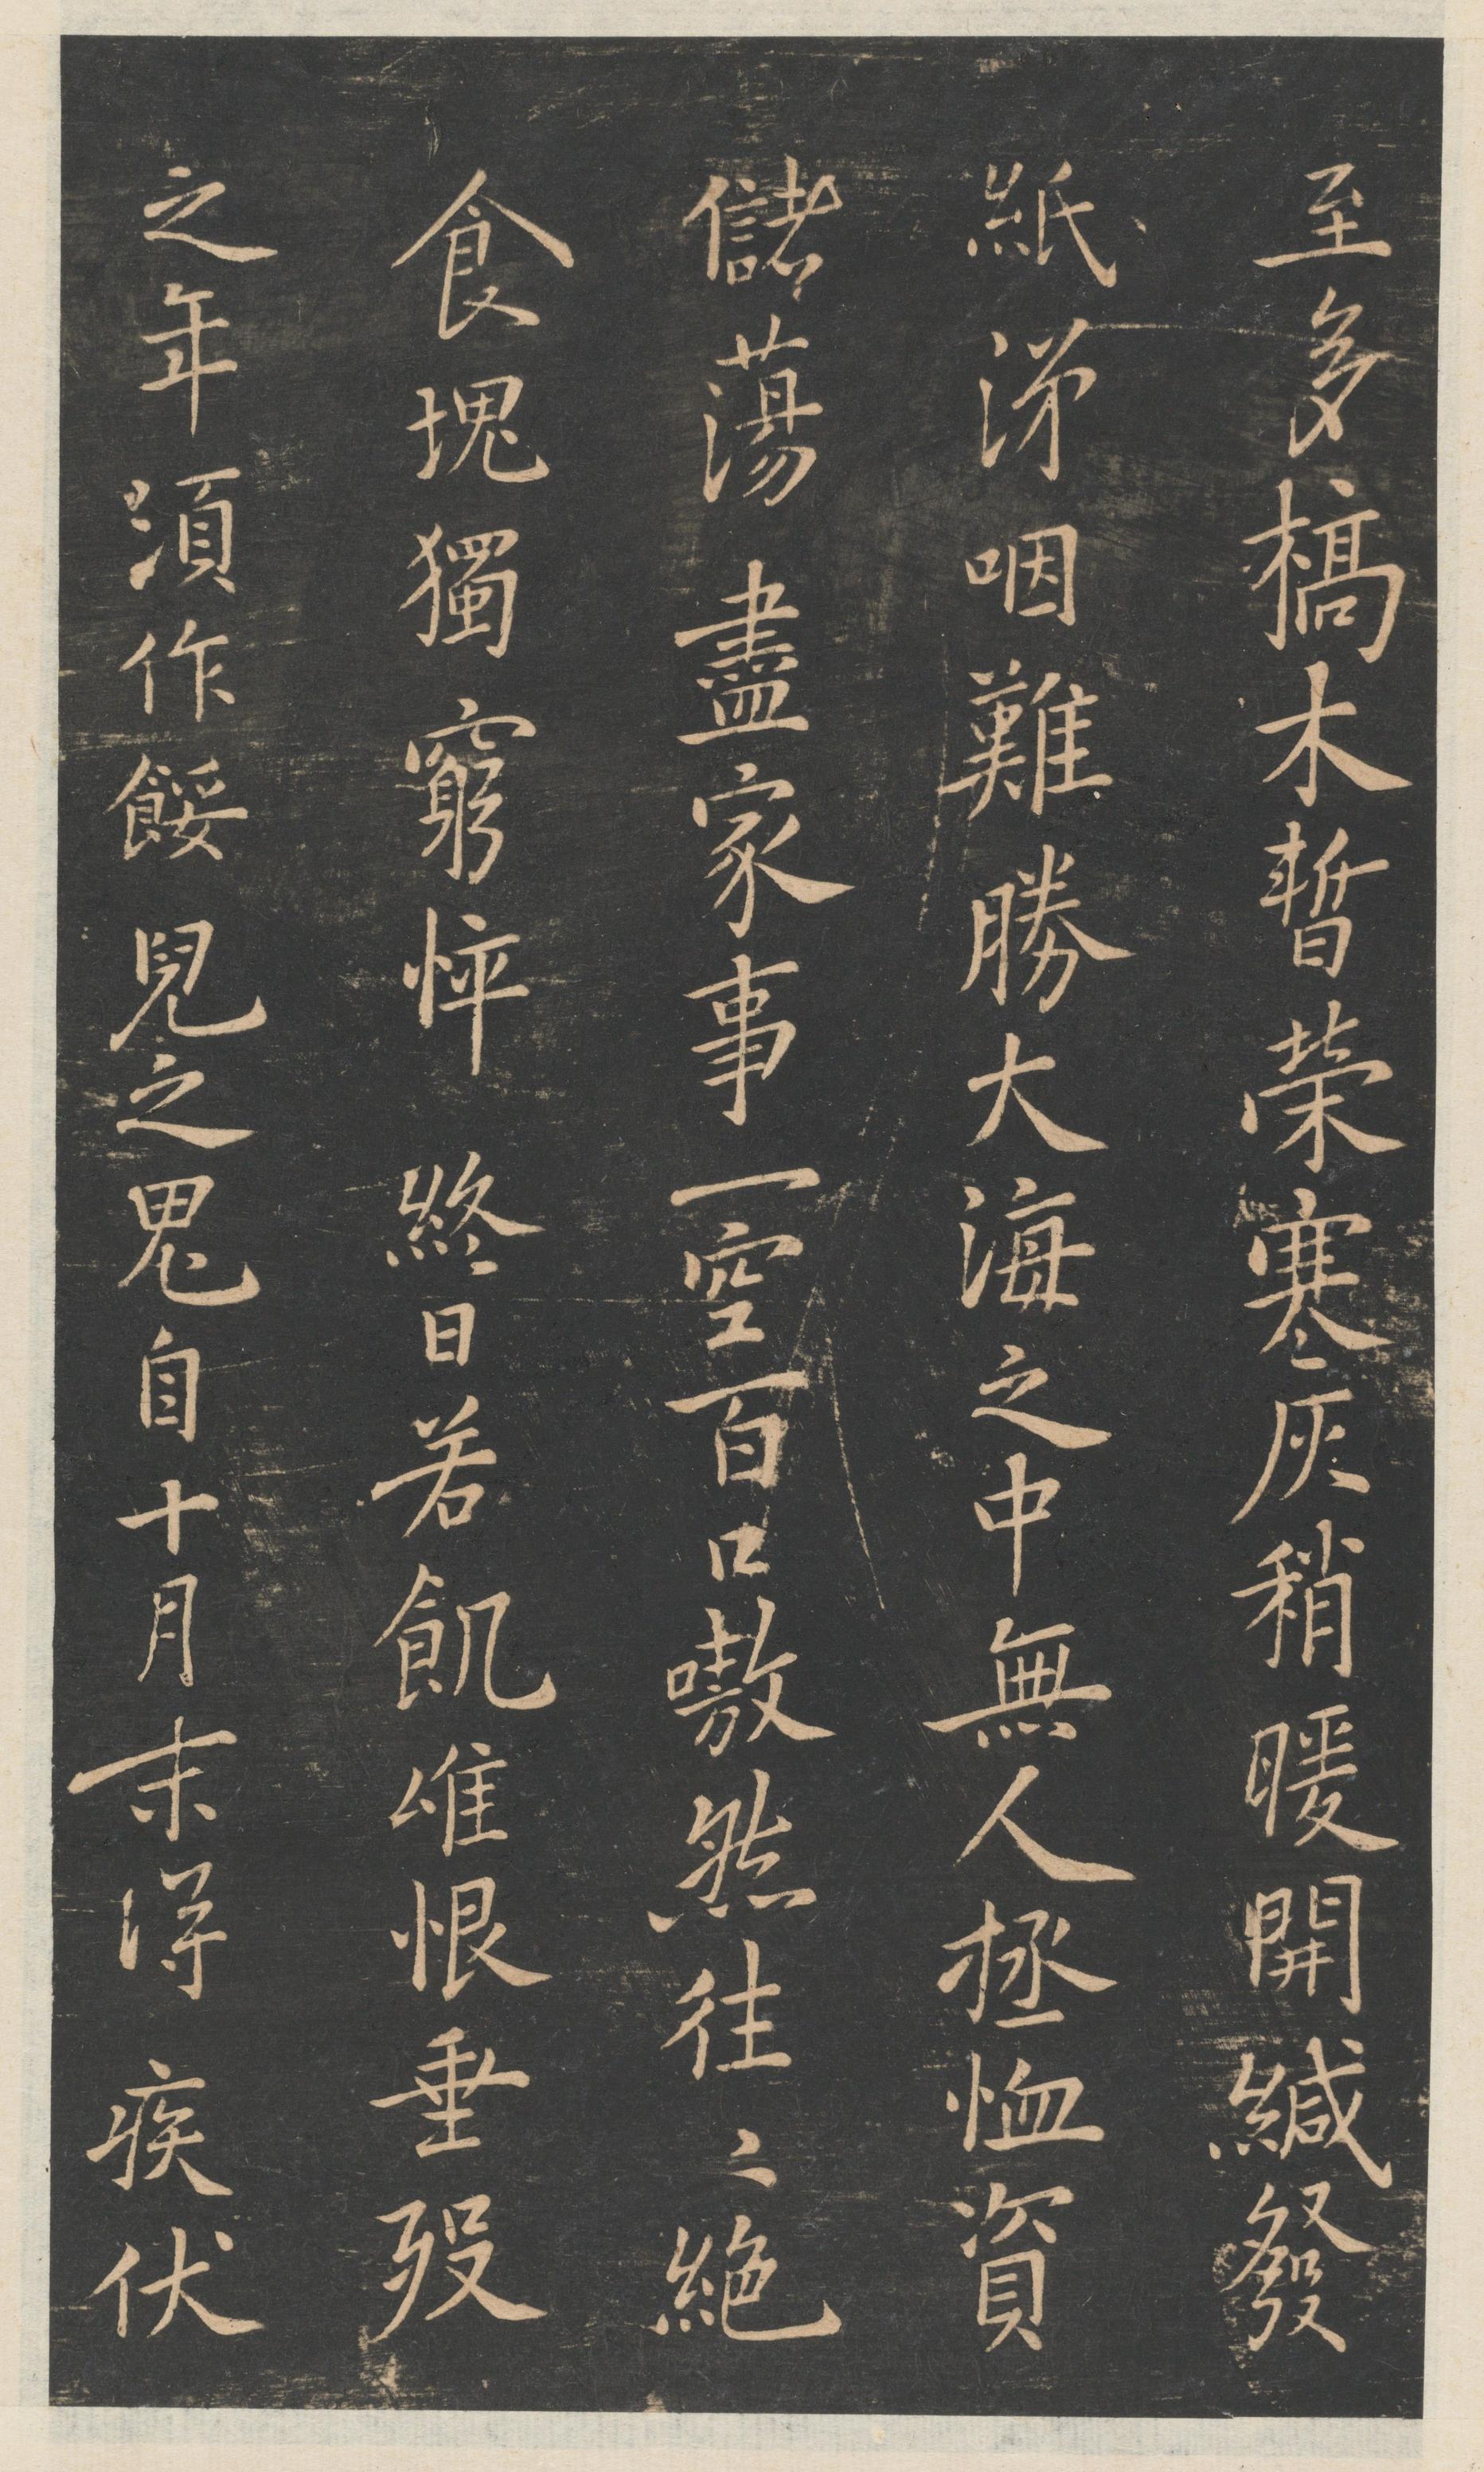 至多槁木暫榮寒灰稍暖開緘發
紙涕咽難勝大海之中無人拯恤資
儲蕩盡家事一空百口嗷然往〻絶
食塊獨窮悴終日苦飢唯恨垂歿
之年須作餒㒵之鬼自十月末得疾伏